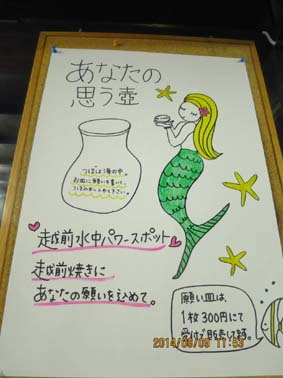 あなたの
思う壺
つぼは海の中
お皿に願いを書いて、
越前水中パワースポット
越前焼きに
あなたの願いをこめて。
願い皿は、
1枚300円にて
受付で販売してます。
2014/08/09 11:53